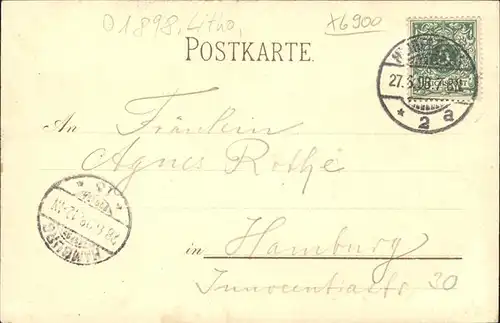 O 1898, Litho,
X6900
POSTKARTE.
An Fräulein
Agnes Rothe
in Hamburg
Innocentiastr 30
27. 3. 98. 7-8 N.
* 2 a
HAMBURG